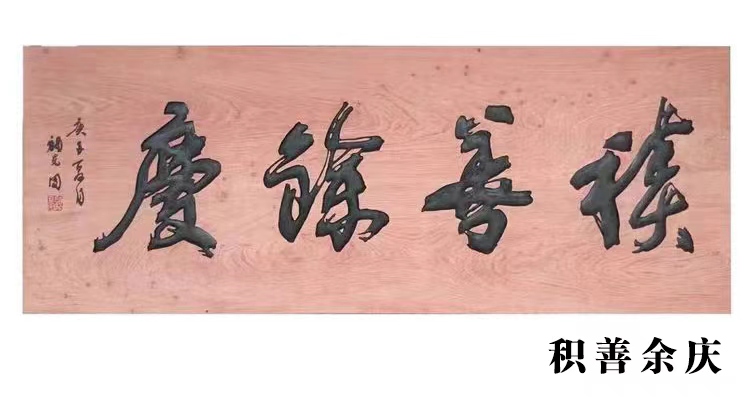 積善餘慶
庚子夏月
积善余庆